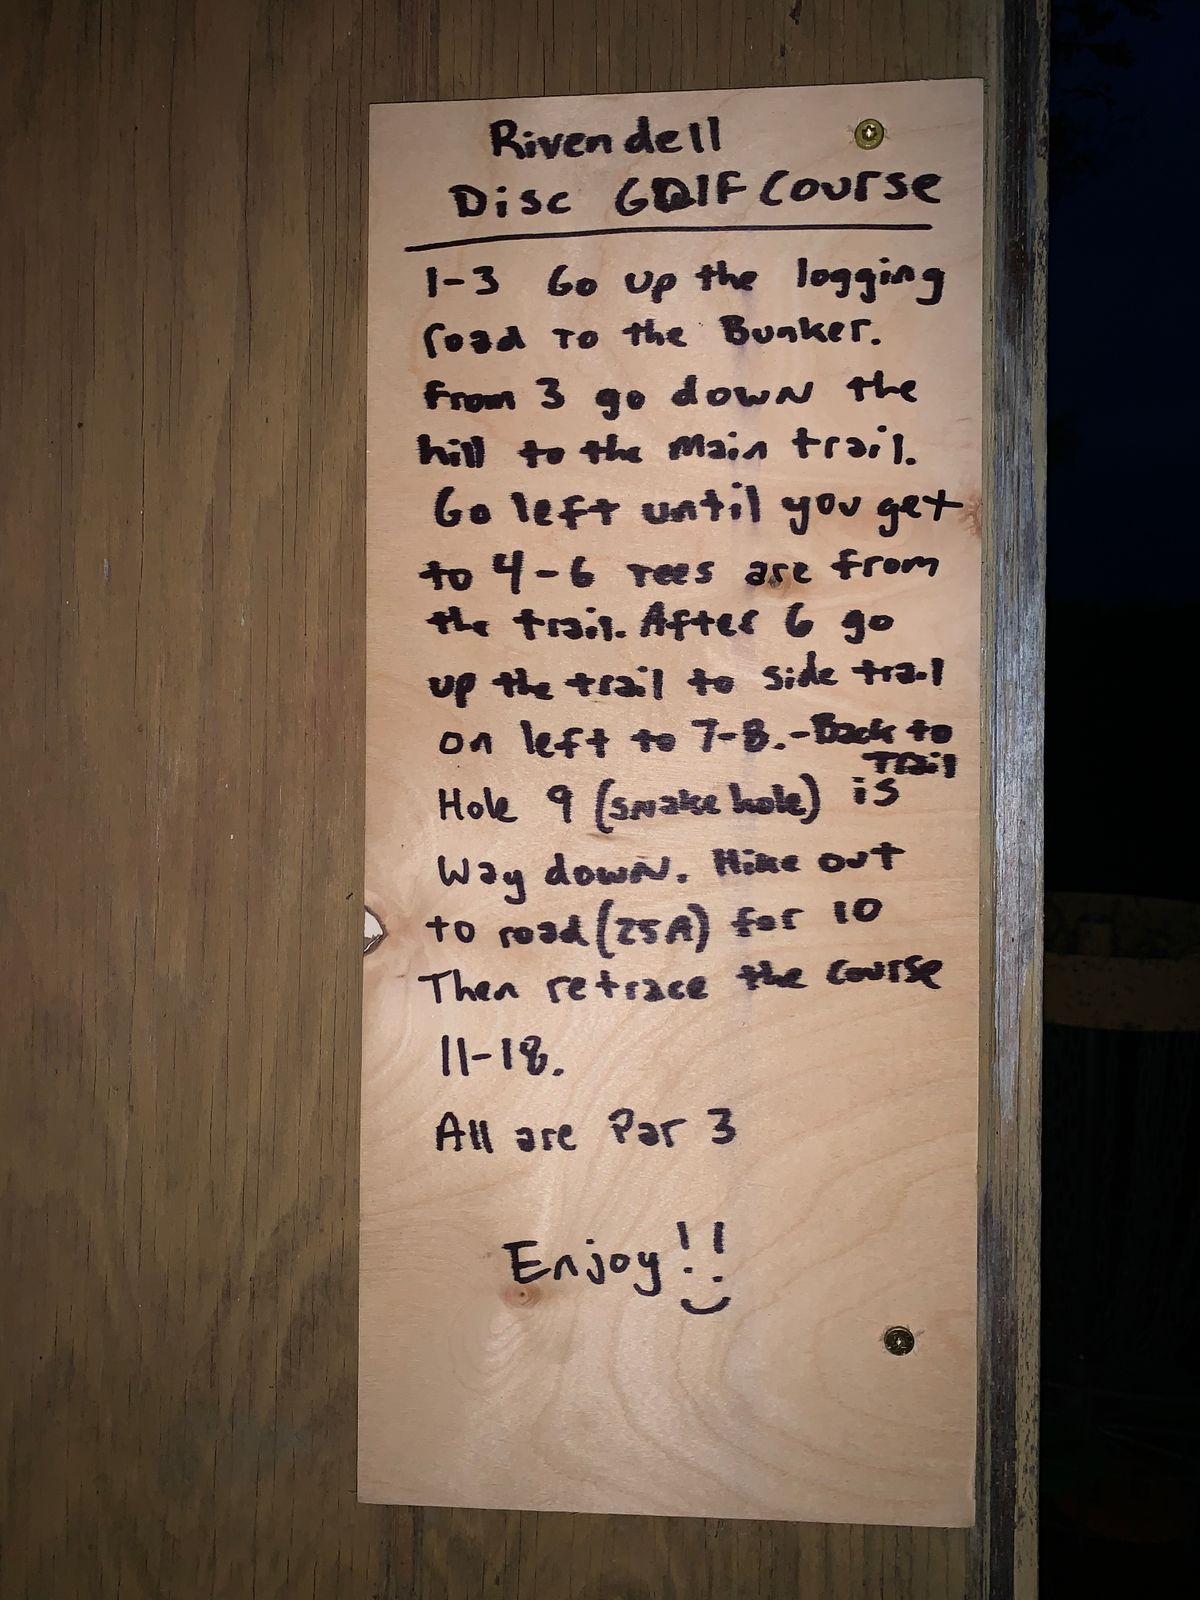 Rivendell
Disc GOlF Course
1-3 Go up the logging
road To the Bunker.
From 3 go down the
hill to the Main trail.
Go left until you get
to 4-6 Tees are from
the trail. After 6 go
up the trail to side trail
on left to 7-8.-Back to
Trail
Hole 9 (snake hole) is
Way down. Hike out
to road (25A) for 10
Then retrace the course
11-18.
All are Par 3
Enjoy!!